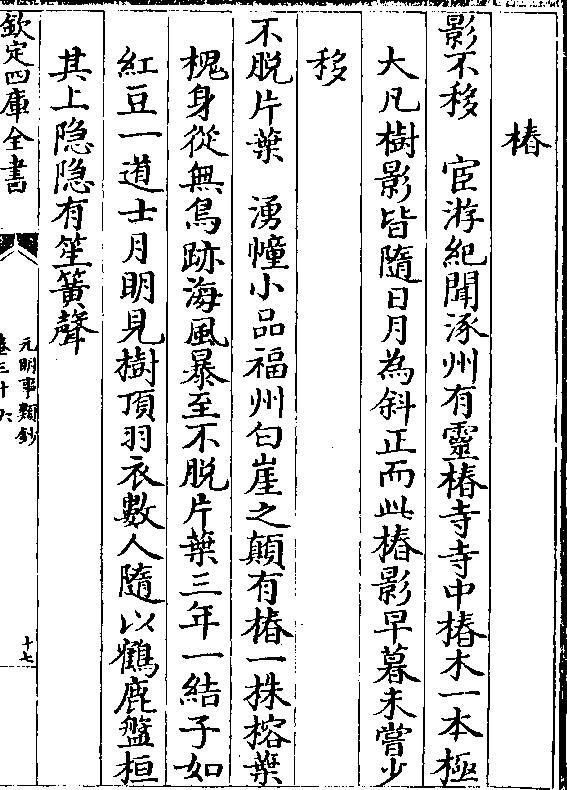 椿
影不移　宦游紀聞涿州有靈椿寺寺中椿木一本極
大凡樹影皆隨日月為斜正而此椿影早暮未嘗少
移
不脱片葉　湧幢小品福州白崖之顛有椿一株榕葉
槐身從無鳥跡海風暴至不脱片葉三年一結子如
紅豆一道士月明見樹頂羽衣數人隨以鶴鹿盤桓
其上隐隐有笙簧聲
欽定四庫全書
元明事類鈔
卷三十六
十七